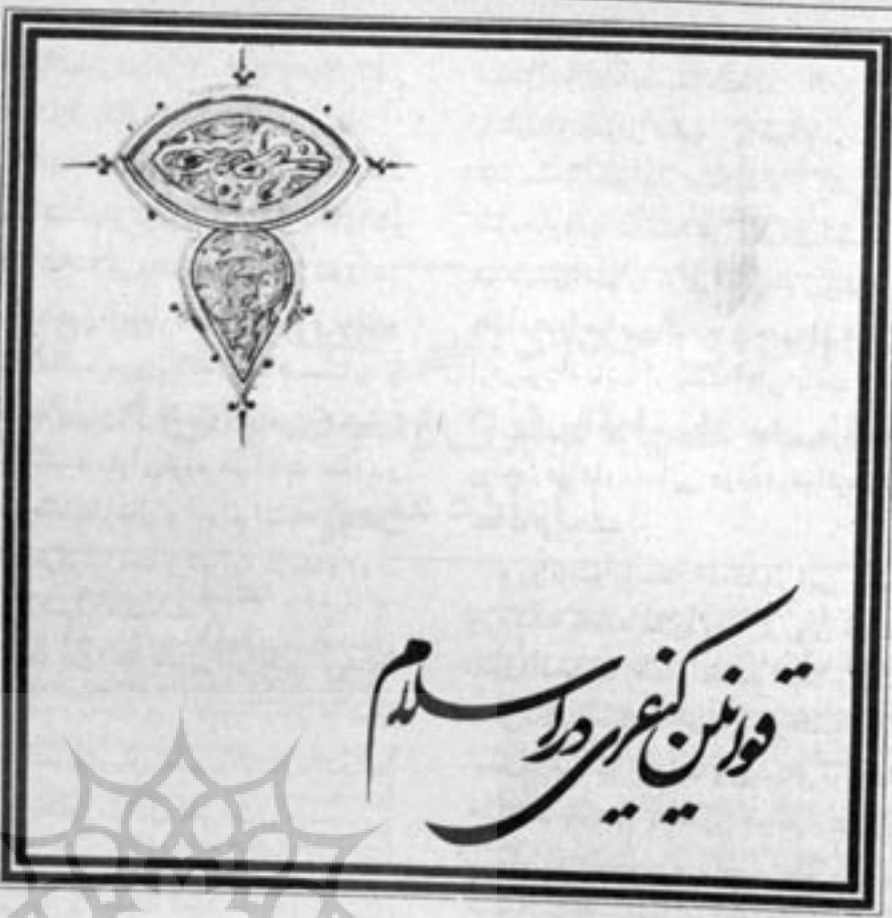 قوانین کیفری در اسلام